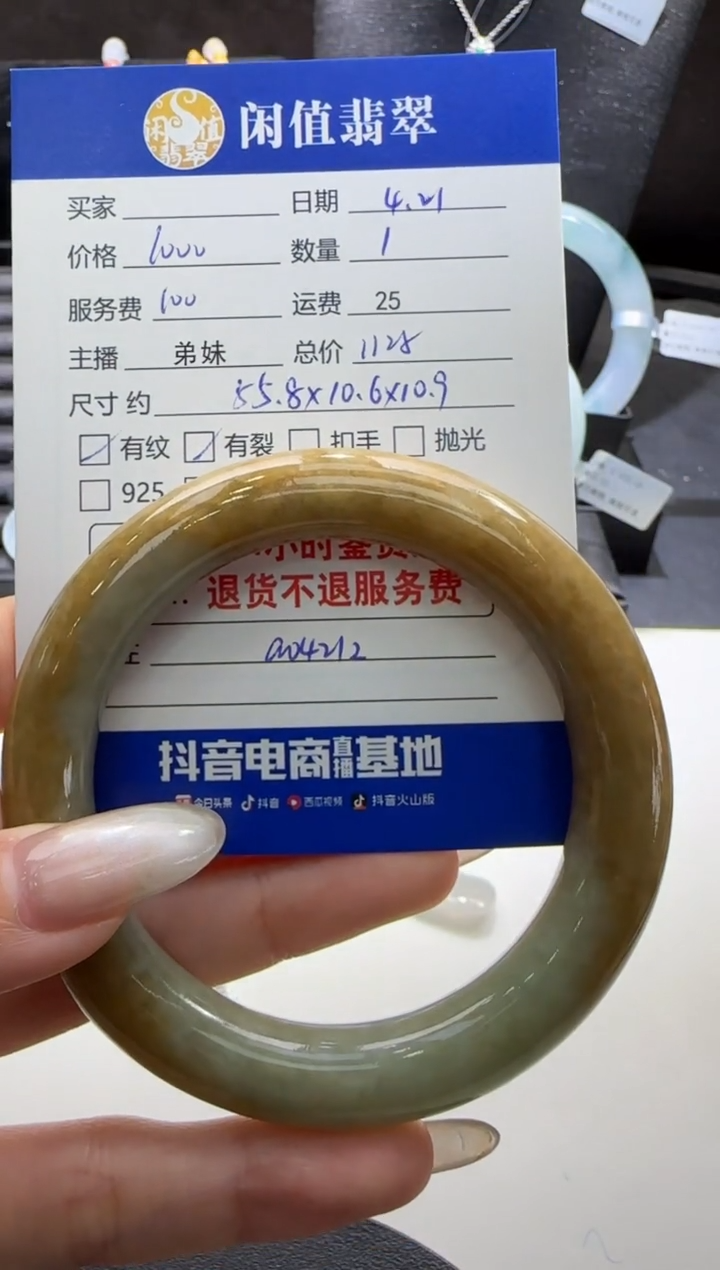 闲值翡翠
闲值翡翠
买家 日期 4.21
价格 1000 数量 1
服务费 100 运费 25
主播 弟妹 总价 1125
尺寸 约 55.8x10.6x10.9
有纹 有裂 扣手 抛光
925
小时鉴赏
退货不退服务费
a04212
抖音电商直播基地
今日头条 抖音 西瓜视频 抖音火山版